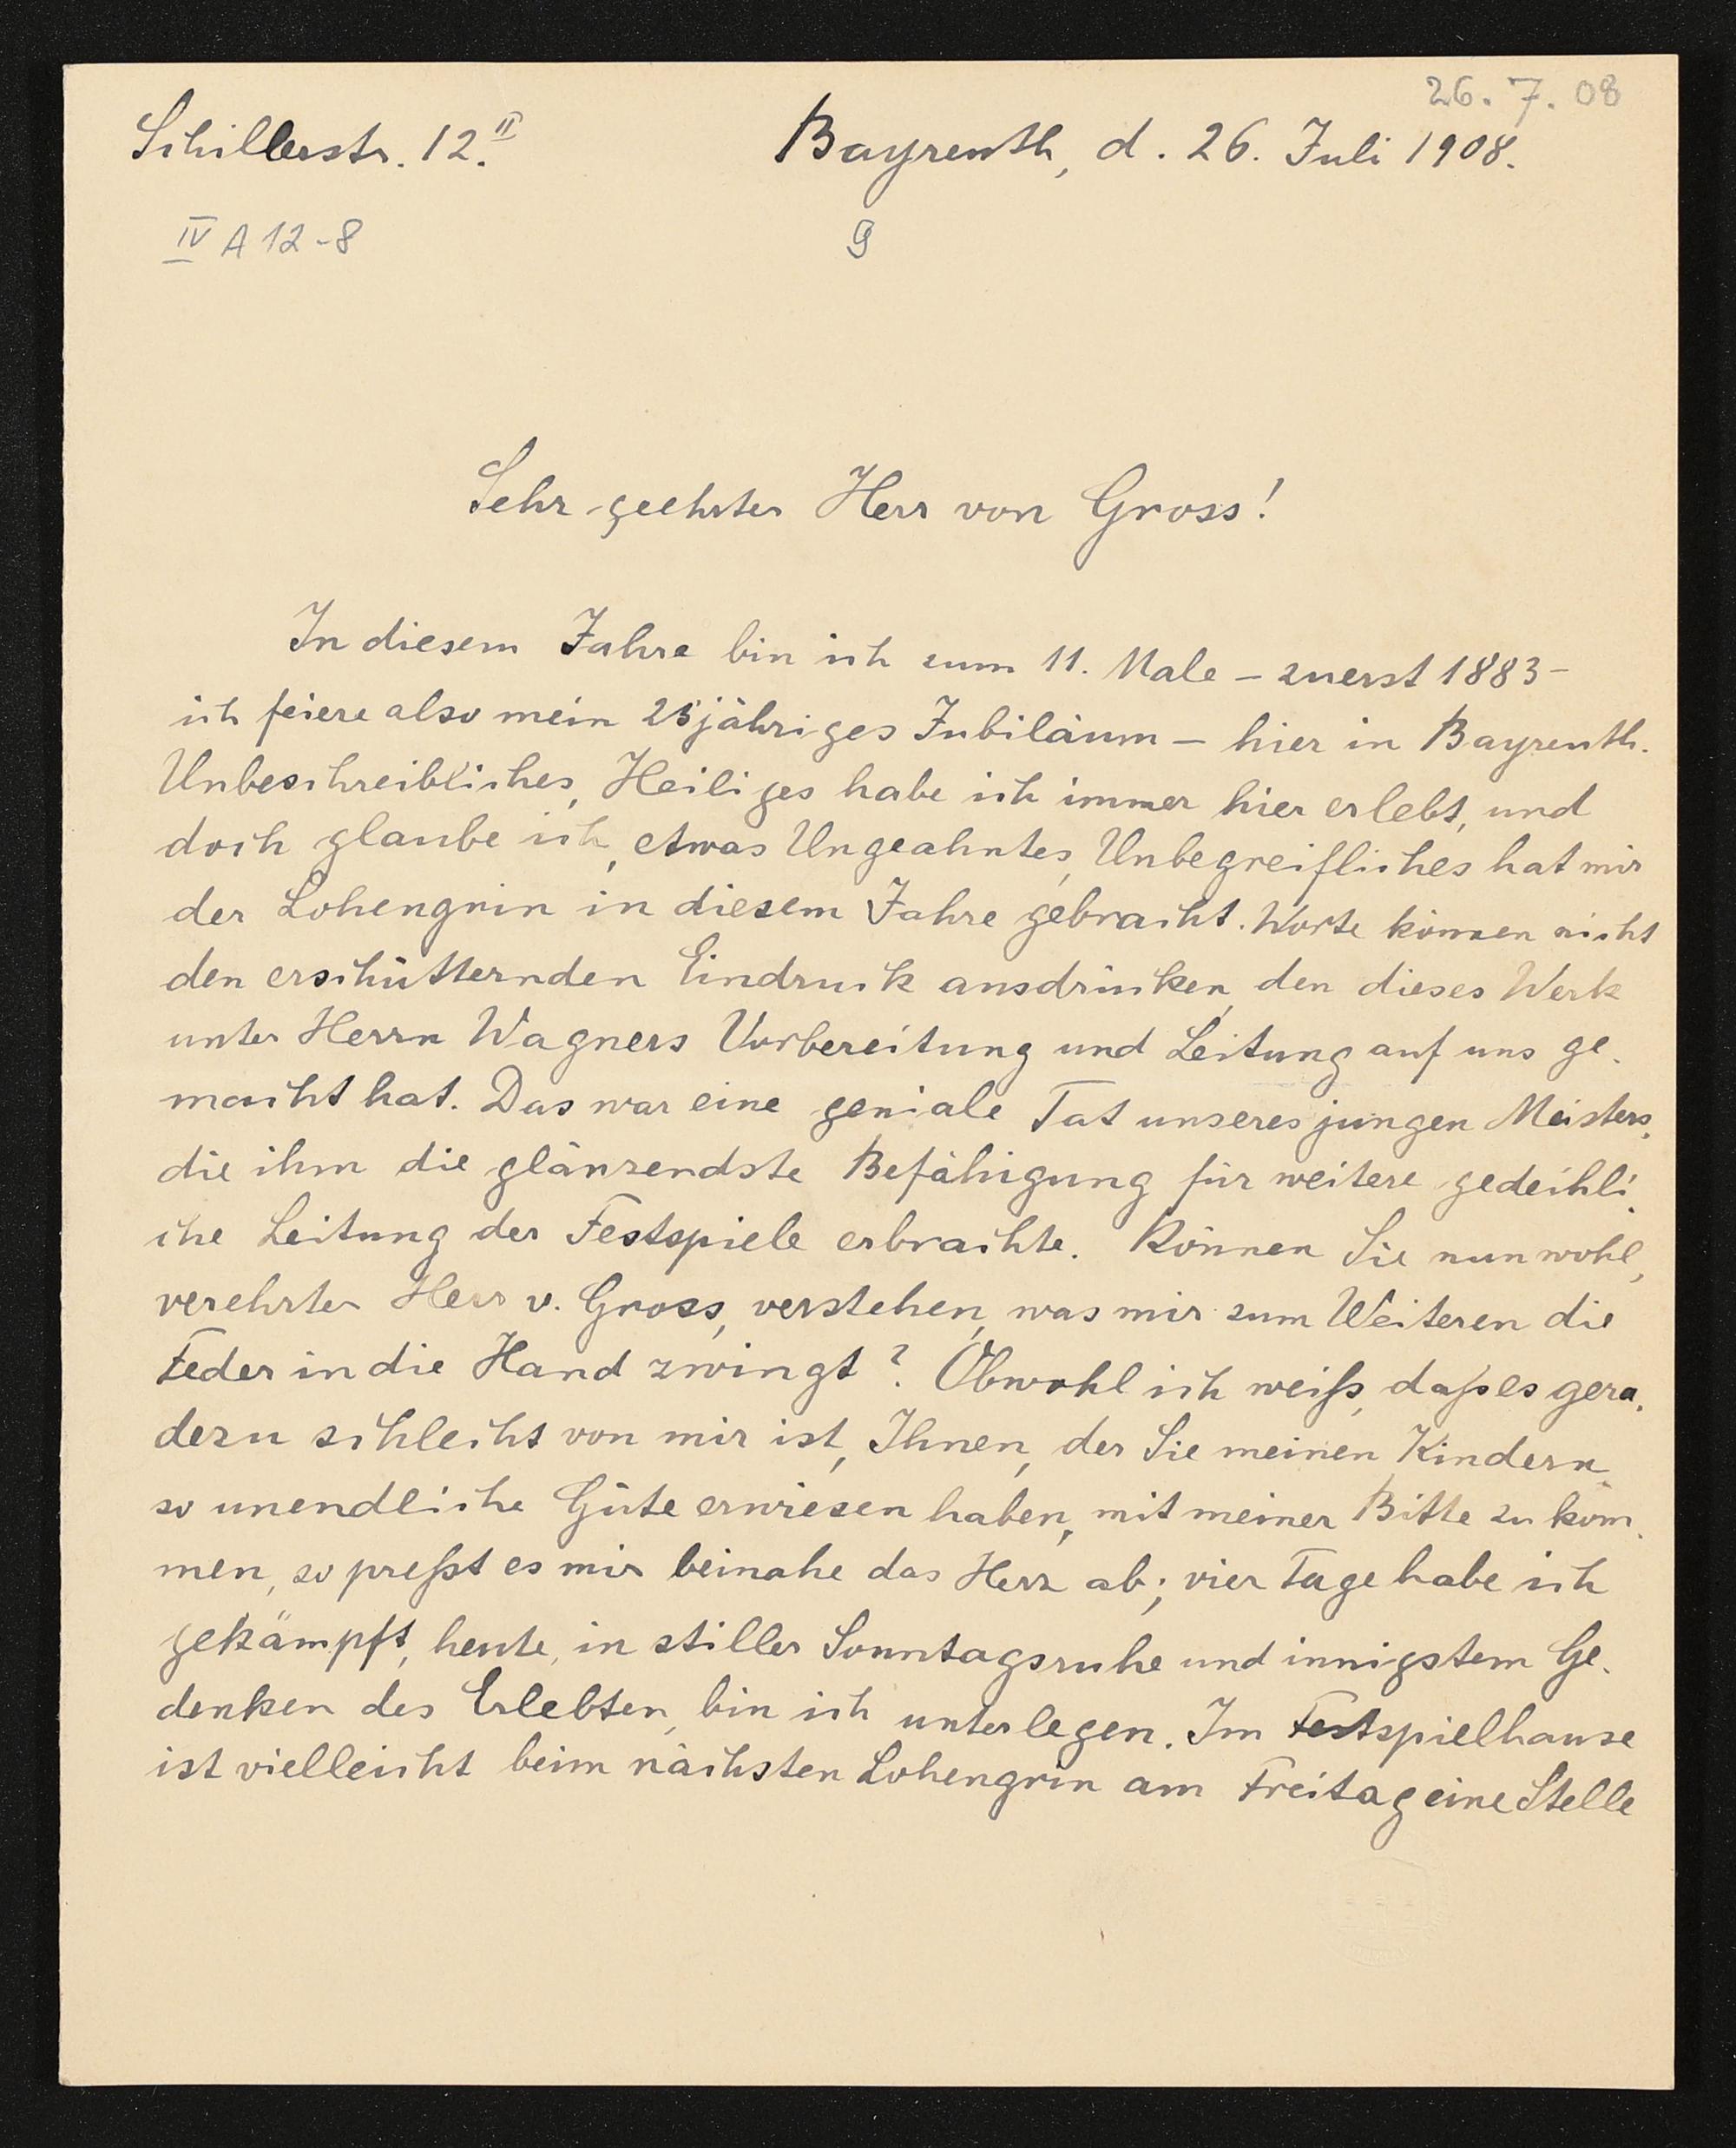 26. 7. 08
Schillerstr. 12.II Bayreuth, d. 26. Juli 1908.
IV A 12-8 9
Sehr geehrter Herr von Gross!
In diesem Jahre bin ich zum 11. Male – zuerst 1883 –
ich feiere also mein 25jähriges Jubiläum – hier in Bayreuth.
Unbeschreibliches, Heiliges habe ich immer hier erlebt, und
doch glaube ich, etwas Ungeahntes, Unbegreifliches hat mir
der Lohengrin in diesem Jahre gebracht. Worte können nicht
den erschütternden Eindruck ausdrücken, den dieses Werk
unter Herrn Wagners Vorbereitung und Leitung auf uns ge-
macht hat. Das war eine geniale Tat unseres jungen Meisters,
die ihm die glänzendste Befähigung für weitere gedeihli-
che Leitung der Festspiele erbrachte. Können Sie nun wohl,
verehrter Herr v. Gross, verstehen, was mir zum Weiteren die
Feder in die Hand zwingt? Obwohl ich weiß, daß es gera-
dezu schlecht von mir ist, Ihnen, der Sie meinen Kindern
so unendliche Güte erwiesen haben, mit meiner Bitte zu kom-
men, so preßt es mir beinahe das Herz ab; vier Tage habe ich
gekämpft, heute, in stiller Sonntagsruhe und innigstem Ge-
denken des Erlebten, bin ich unterlegen. Im Festspielhause
ist vielleicht beim nächsten Lohengrin am Freitag eine Stelle